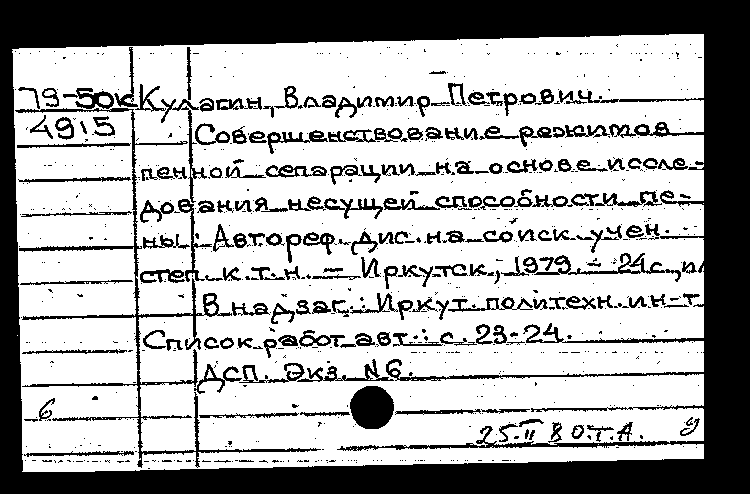 79-50к Кулагин, Владимир Петрович.
4915 Совершенствование режимов
пенной сепарации на основе иссле-
дования несущей способности пе-
ны : Автореф. дис. на соиск. учен.
степ. к.т.н. – Иркутск, 1979. – 24с., ил
В надзаг.: Иркут. политехн. ин-т
Список работ авт.: с. 23-24.
ДСП. Экз. №6.
6
25.II 80 Т.А. у